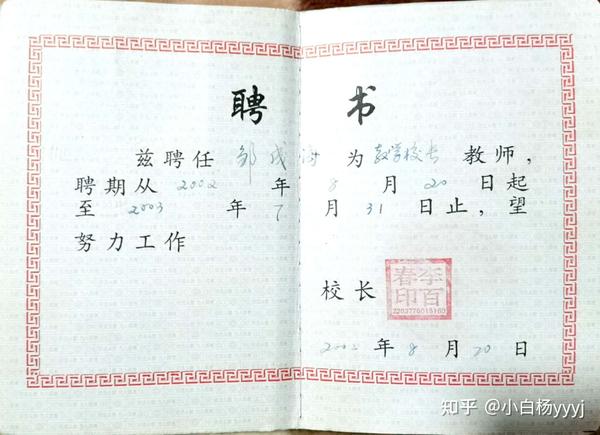 聘 书
兹聘任 邹成海 为 教学校长 教师，
聘期从 2002 年 8 月 20 日起
至 2003 年 7 月 31 日止，望
努力工作
校长
李百
春印
2203770015160
2002 年 8 月 20 日
知乎 @小白杨yyyj